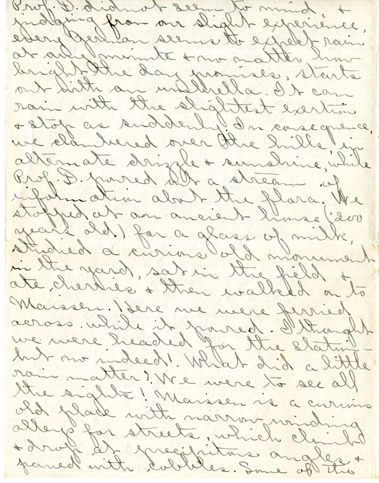 Prof. D. did not seem to mind, &
judging from our slight experience,
every German seems to expect rain
at any minute & no matter how
bright the day promises, starts
out with an umbrella. It can
rain with the slightest exertion
& stop as suddenly. In consequence,
we clambered over the hills in
alternate drizzle & sunshine, while
Prof. D. poured out a stream of
information about the flora. We
stopped at an ancient house (200
years old) for a glass of milk,
studied a curious old monument
in the yard, sat in the field &
ate cherries & then walked on to
Maissen. Here we were ferried
across while it poured. I thought
we were headed for the station-
but no indeed! What did a little
rain matter? We were to see all
the sights! Maissen is a curious
old place with narrow winding
alleys for streets, which climb
& drop at precipitous angles &
paved with cobbles. Some of the